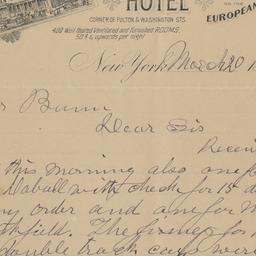 HOTEL
ON THE
EUROPEAN
CORNER OF FULTON & WASHINGTON STS.
400 Well Heated Ventilated and Furnished ROOMS,
50¢ & upwards per night
New York March 20 1
Bunn
Dear Sir
Receiv
this morning also one f
Daball with check for 15 d
order and one for M
field. The fixing for
double track cars were